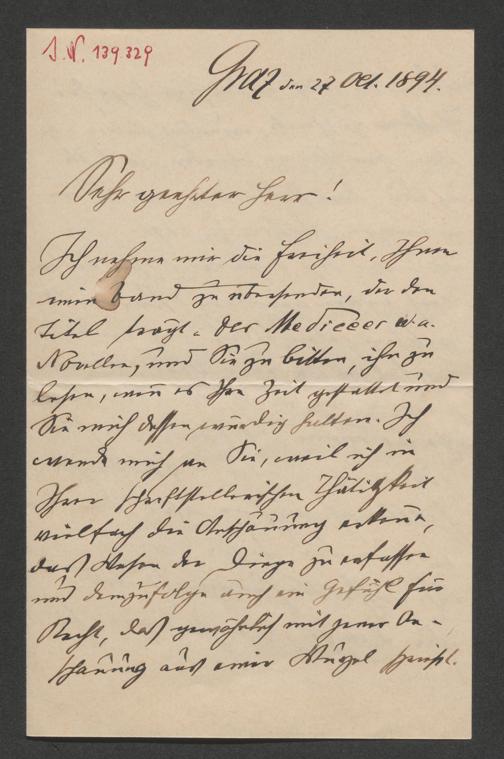 I.N. 139.329
Graz den 27 Okt. 1894.
Sehr geehrter Herr!
Ich nehme mir die Freiheit, Ihnen
mein Band zu übersenden, der den
Titel trägt „Der Mediceer u. a.
Novellen, und Sie zu bitten, ihn zu
lesen, wenn es Ihre Zeit gestattet und
Sie mich dessen würdig halten. Ich
wende mich an Sie, weil ich in
Ihrer schriftstellerischen Thätigkeit
vielfach die Anschauung erkenne,
das Wesen der Dinge zu erfassen
und demzufolge auch ein Gefühl für
Recht, das gewöhnlich mit jener An-
schauung aus einer Wurzel spriesst.